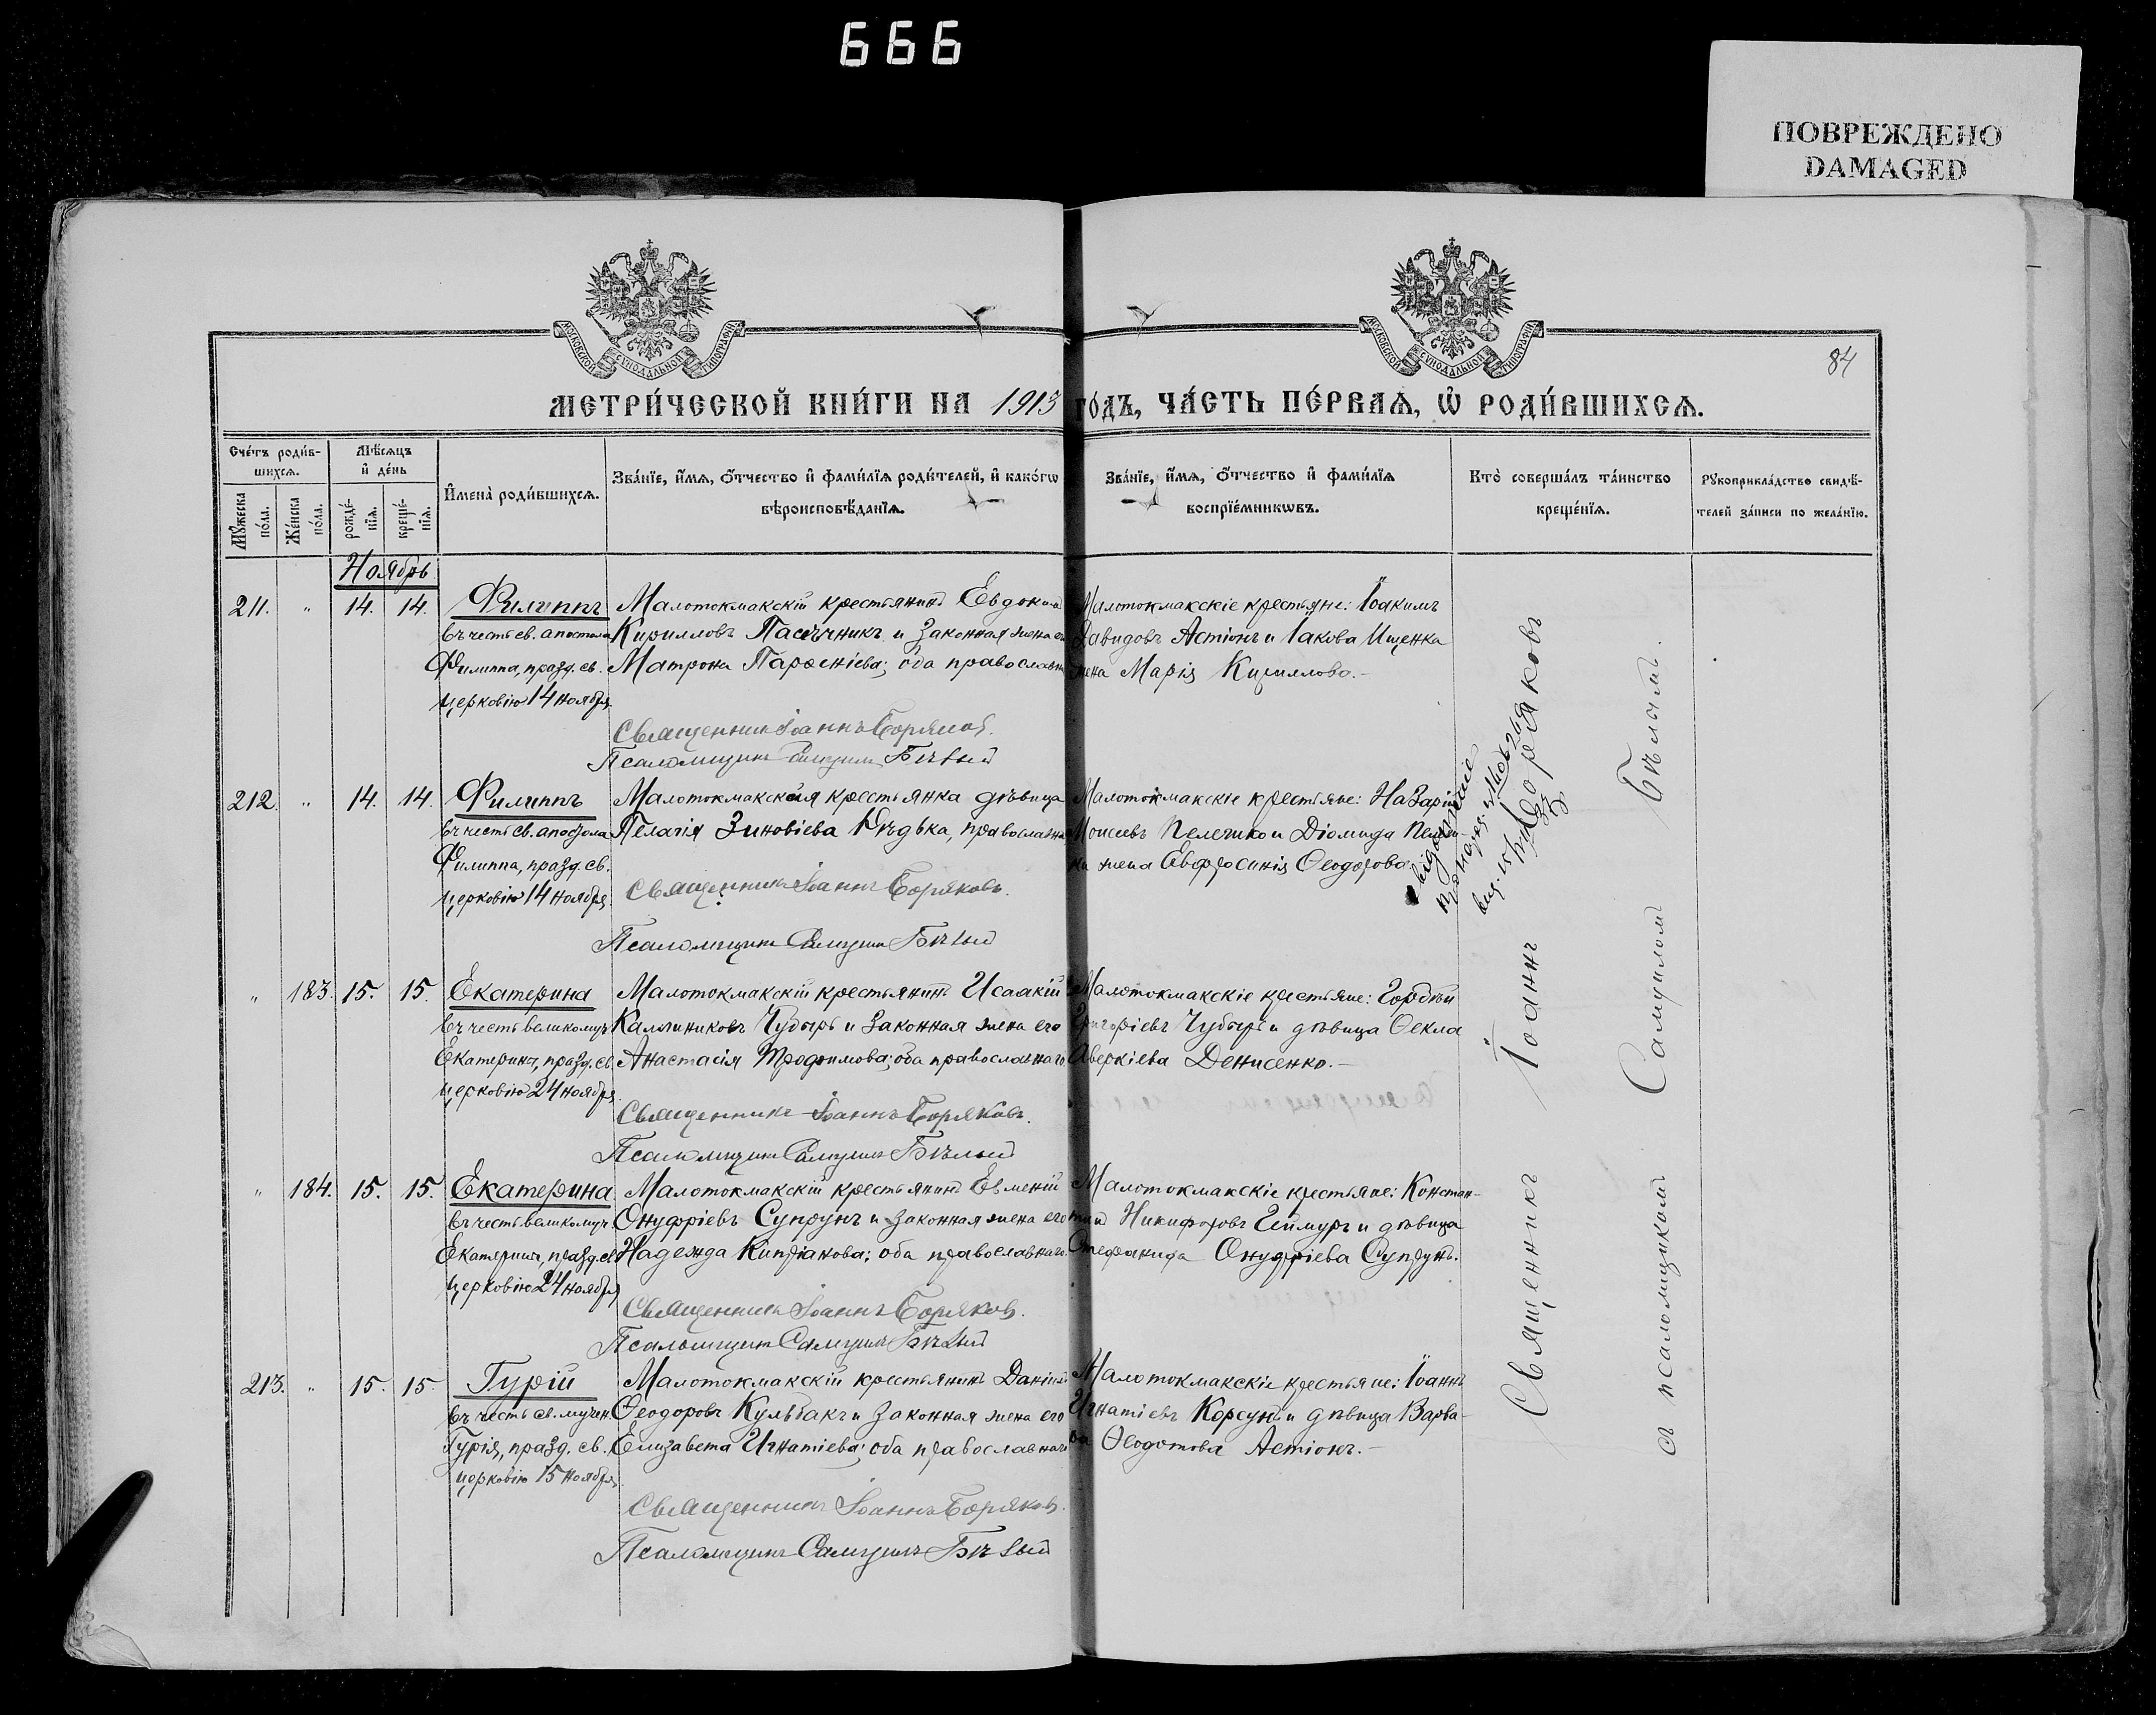 666
ПОВРЕЖДЕНО
DAMAGED
МОСКОВСКОЙ СѴНОДАЛЬНОЙ ТИПОГРАФІИ
МОСКОВСКОЙ СѴНОДАЛЬНОЙ ТИПОГРАФІИ
84
МЕТРИ́ЧЕСКОЙ КНИ́ГИ НА 1913 ГО́ДЪ, ЧА́СТЬ ПЕ́РВАѦ, Ѡ РОДИ́ВШИХСѦ.
Сче́тъ роди́в-
шихсѧ.
Мѣ́сѧцъ
и де́нь
Мꙋ́жеска по́ла.
Же́нска по́ла.
рожде́-
нїѧ.
креще́-
нїѧ.
И҆мена̀ роди́вшихсѧ.
Зва́нїе, и҆́мѧ, ѻ҆́тчество и҆ фами́лїѧ роди́телей, и҆ како́гѡ
вѣроисповѣ́данїѧ.
Зва́нїе, и҆́мѧ, ѻ҆́тчество и҆ фами́лїѧ
воспрїе́мникѡвъ.
Кто̀ соверша́лъ та́инство
креще́нїѧ.
Рꙋкоприкла́дство свидѣ́-
телей за́писи по жела́нїю.
Ноябрь
211. " 14. 14. Филиппъ
въ честь св. апостола
Филиппа, празд. св.
церковію 14 ноября.
Малотокмакскій крестьянинъ Евдокимъ
Кирилловъ Пасѣчникъ и законная жена его
Матрона Парѳеніева; оба православн.
Священникъ Іоаннъ Боряковъ.
Псаломщикъ Самуилъ Бѣлый
Малотокмакскіе крестьяне: Іоакимъ
Давидовъ Астіонъ и Іакова Ищенка
жена Марія Кириллова.–
212. " 14. 14. Филиппъ
въ честь св. апостола
Филиппа, празд. св.
церковію 14 ноября.
Малотокмакская крестьянка дѣвица
Пелагія Зиновіева Рѣдька, православна
Священникъ Іоаннъ Боряковъ.
Псаломщикъ Самуилъ Бѣлый
Малотокмакскіе крестьяне: Назарій
Моисеевъ Пелешко и Діомида Пелеш-
ка жена Евфросинія Ѳеодорова
" 183. 15. 15. Екатерина
въ честь великомуч.
Екатерины, празд. св.
церковію 24 ноября.
Малотокмакскій крестьянинъ Исаакій
Каллиниковъ Чубырь и законная жена его
Анастасія Трофимова; оба православнаго.
Священникъ Іоаннъ Боряковъ.
Псаломщикъ Самуилъ Бѣлый
Малотокмакскіе крестьяне: Гордѣй
Григоріевъ Чубырь и дѣвица Ѳекла
Аверкіева Денисенко.–
" 184. 15. 15. Екатерина
въ честь великомуч.
Екатерины, празд. св.
церковію 24 ноября
Малотокмакскій крестьянинъ Евменій
Онуфріевъ Супрунъ и законная жена его
Надежда Кипріанова; оба православнаго.
Священникъ Іоаннъ Боряковъ.
Псаломщикъ Самуилъ Бѣлый
Малотокмакскіе крестьяне: Констан-
тинъ Никифоровъ Геймуръ и дѣвица
Стефанида Онуфріева Супрунъ.
213. " 15. 15. Гурій
въ честь св. мучен.
Гурія, празд. св.
церковію 15 ноября
Малотокмакскій крестьянинъ Даніилъ
Ѳеодоровъ Кульбакъ и законная жена его
Елизавета Игнатіева; оба православнаго
Священникъ Іоаннъ Боряковъ.
Псаломщикъ Самуилъ Бѣлый
Малотокмакскіе крестьяне: Іоаннъ
Игнатіевъ Корсунъ и дѣвица Варва-
ра Ѳеодотова Астіонъ.–
Священникъ Іоаннъ Боряковъ
съ псаломщикомъ Самуиломъ Бѣлымъ.